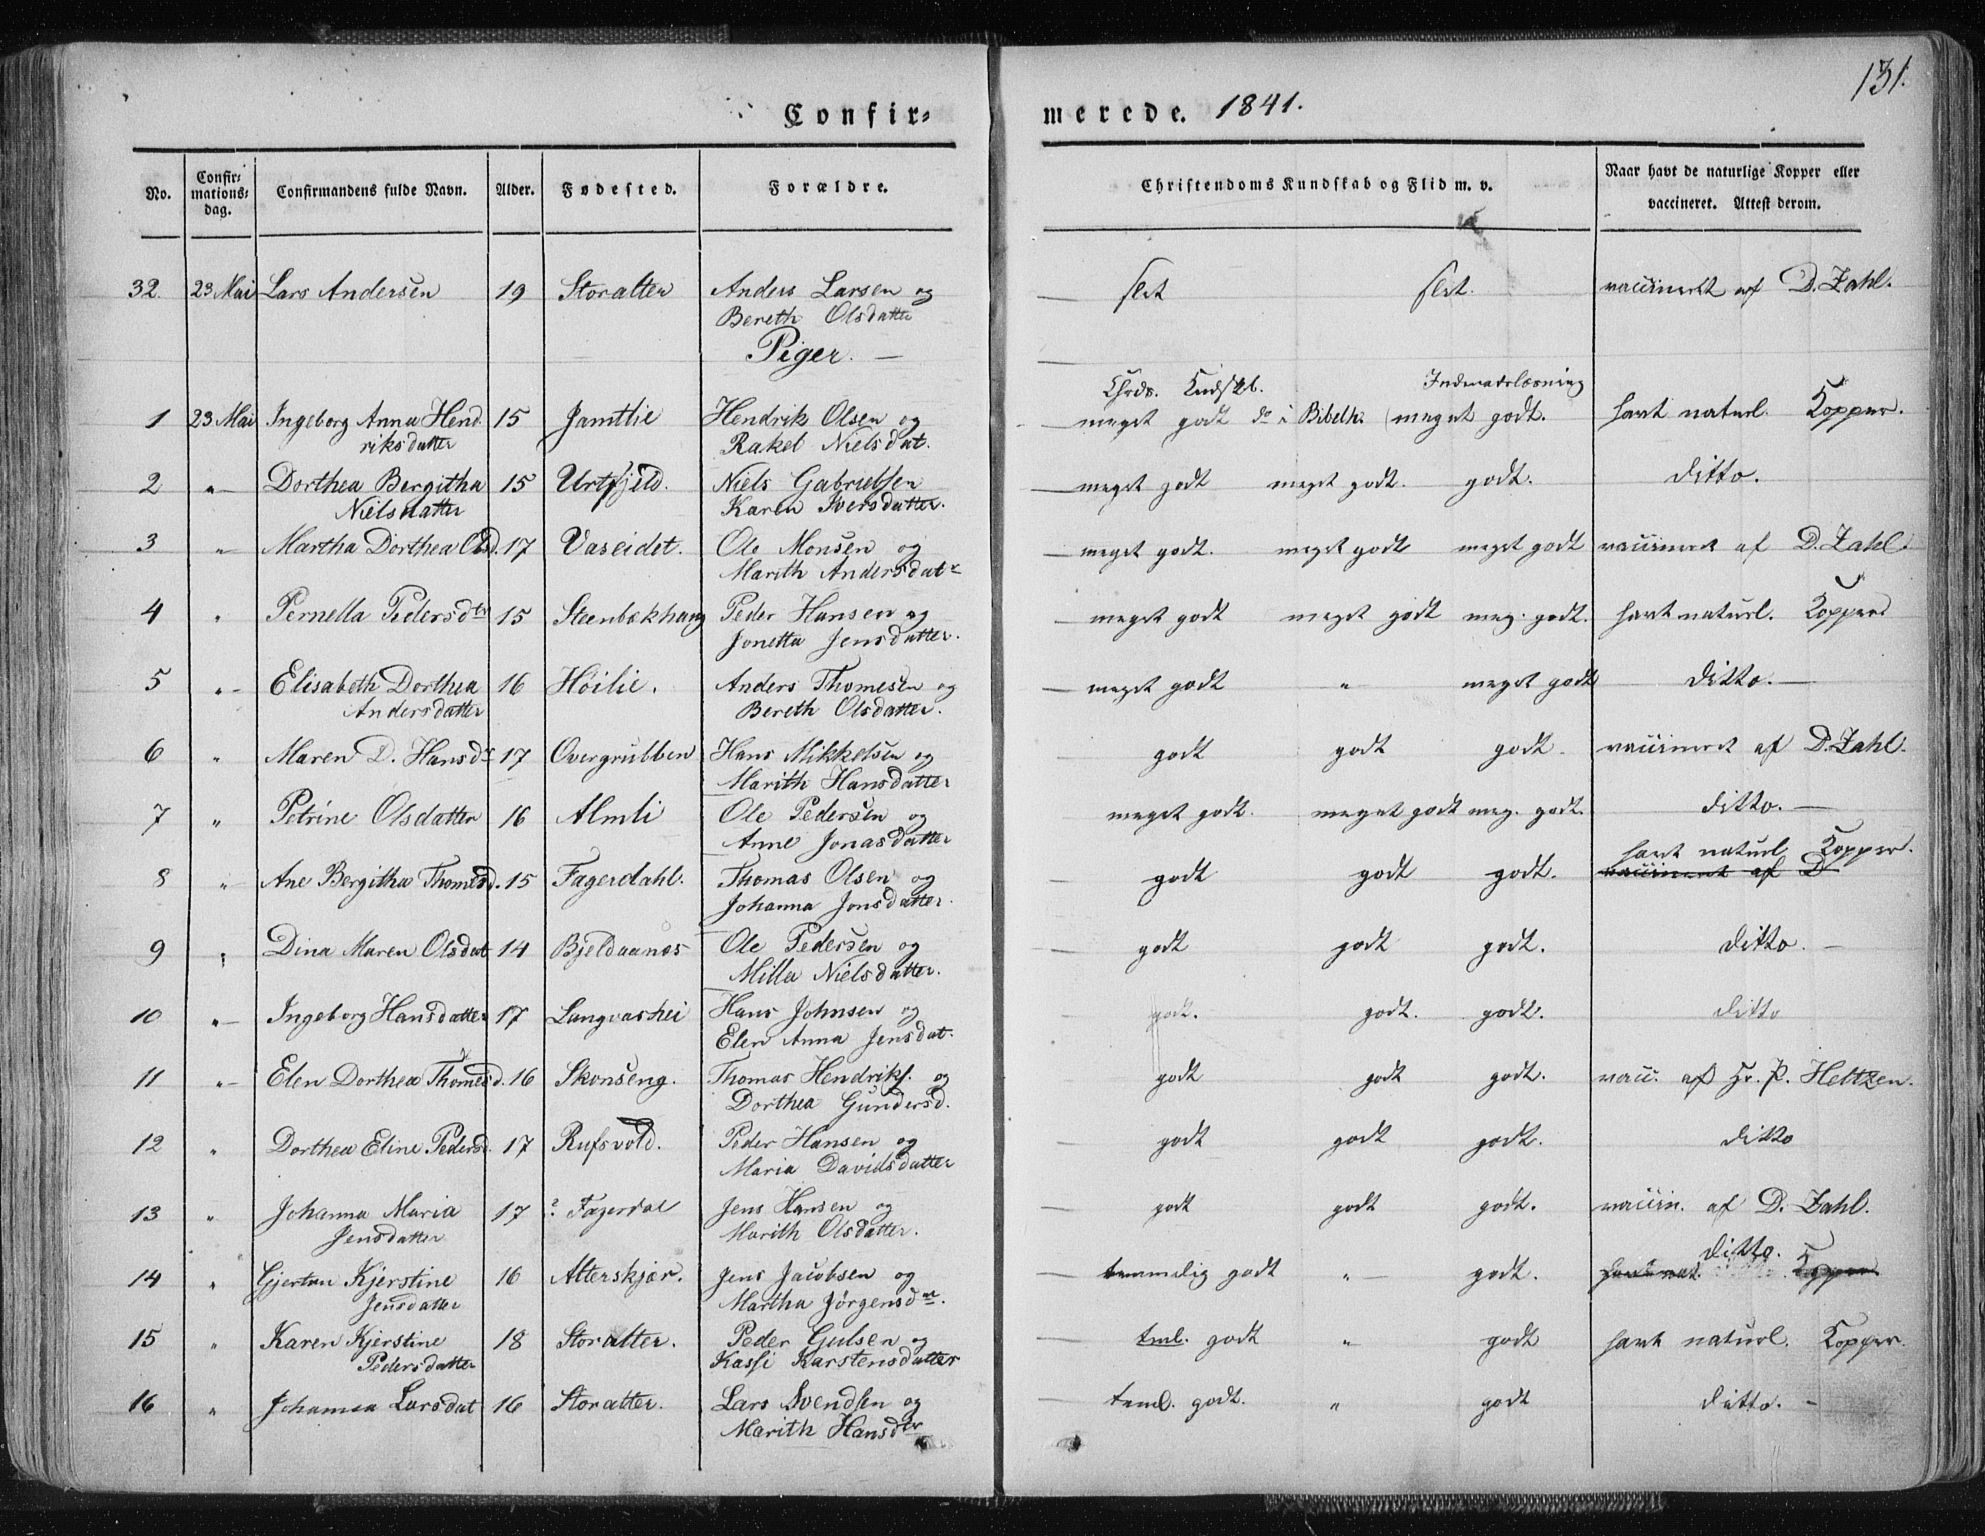 131.
Confir= merede. 1841.
No. Confir= mations= dag. Confirmandens fulde Navn. Alder. Fødested. Forældre. Christendoms Kundskab og Flid m. v. Naar havt de naturlige Kopper eller vaccineret. Attest derom.
32. 23 Mai Lars Andersen 19 Storalter Anders Larsen og — slet slet. vaccineret af D. Zahl.
Bereth Olsdatter
Piger. —
Chrds. Kudskb. Indenadslæsning
1 23 Mai Ingeborg Anna Hend 15 Jamtlie Hendrik Olsen og — meget godt do i Bibelh. meget godt. havt naturl. Kopper.
riksdatter Rakel Nielsdat.
2 " Dorthea Bergitha 15 Urtfjeld. Niels Gabrielsen — meget godt meget godt. godt. ditto.
Nielsdatter Karen Iversdatter.
3 " Martha Dorthea Olsd. 17 Vaseidet. Ole Monsen og — meget godt. meget godt meget godt vaccineret af D. Zahl.
Marith Andersdatr
4 " Pernella Pedersdtr 15 Steenbekhaug Peder Hansen og — meget godt meget godt meg. godt. havt naturl. Kopper
Jonetta Jensdatter.
5 " Elisabeth Dorthea 16 Høilie. Anders Thomesen og — meget godt " meget godt ditto. —
Andersdatter Bereth Olsdatter.
6 " Maren D. Hansdr 17 Overgrubben Hans Mikkelsen og — godt godt godt. vaccineret af D. Zahl.
Marith Hansdatter
7 " Petrine Olsdatter 16 Almli Ole Pedersen og — meget godt. meget godt meg. godt. ditto. —
Anne Jonasdatter
havt naturl. Kopper.
8 " Ane Bergitha Thomesd. 15 Fagerdahl. Thomas Olsen og — godt godt godt. vaccineret af D
Johanna Jonsdatter.
9 " Dina Maren Olsdat 14 Bjeldaanæs Ole Pedersen og — godt godt godt. ditto. —
Milla Nielsdatter.
10 " Ingeborg Hansdatter 17 Langvashei Hans Johnsen og — godt. godt. godt. ditto
Elen Anna Jensdat.
11 " Elen Dorthea Thomesd. 16 Skonseng. Thomas Hendriks. og — godt godt godt. vacc. af Hr. P. Heltzen.
Dorthea Gundersd.
12 " Dorthea Eline Pedersd. 17 Rufsvold. Peder Hansen og — godt godt godt. ditto
Maria Davidsdatter
13 " Johanna Maria 17 ? Fagerdal Jens Hansen og — godt godt godt. vaccin. af D. Zahl.
Jensdatter Marith Olsdatter.
ditto.
14 " Gjertru Kjerstine 16 Alterskjær. Jens Jacobsen og — temmelig godt " — godt. havt nat. Kopper
Jensdatter Martha Jørgensdtr.
15 " Karen Kjerstine 18 Storalter. Peder Gulsen og — teml. godt " godt havt naturl. Kopper.
Pedersdatter Kassi Karstensdatter
16 " Johanna Larsdat 16 Storalter. Lars Svendsen og — teml. godt. " godt ditto. —
Marith Hansdtr